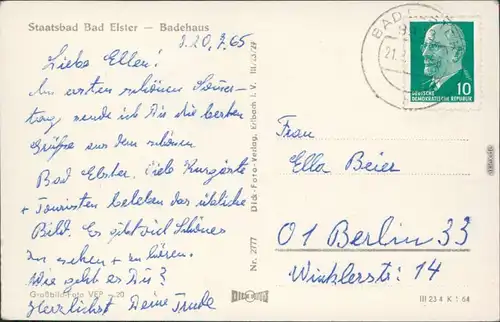 Staatsbad Bad Elster — Badehaus
20.7.65
Liebe Ellen!
Am ersten schönen Sonnen-
tag sende ich Dir die besten
Grüße aus dem schönen
Bad Elster. Viele Kurgäste
+ Touristen beleben das übliche
Bild. Es gibt viel Schönes
zu sehen + zu hören.
Wie geht es Dir?
Herzlichst Deine Trude
Großbild-Foto VEP —.20
Nr. 2777 Dick-Foto-Verlag, Erlbach i. V.
BAD ELSTER
21.7.
10
DEUTSCHE
DEMOKRATISCHE REPUBLIK
Frau
Ella Beier
01 Berlin 33
Winklerstr. 14
III 23 4 K 1 64